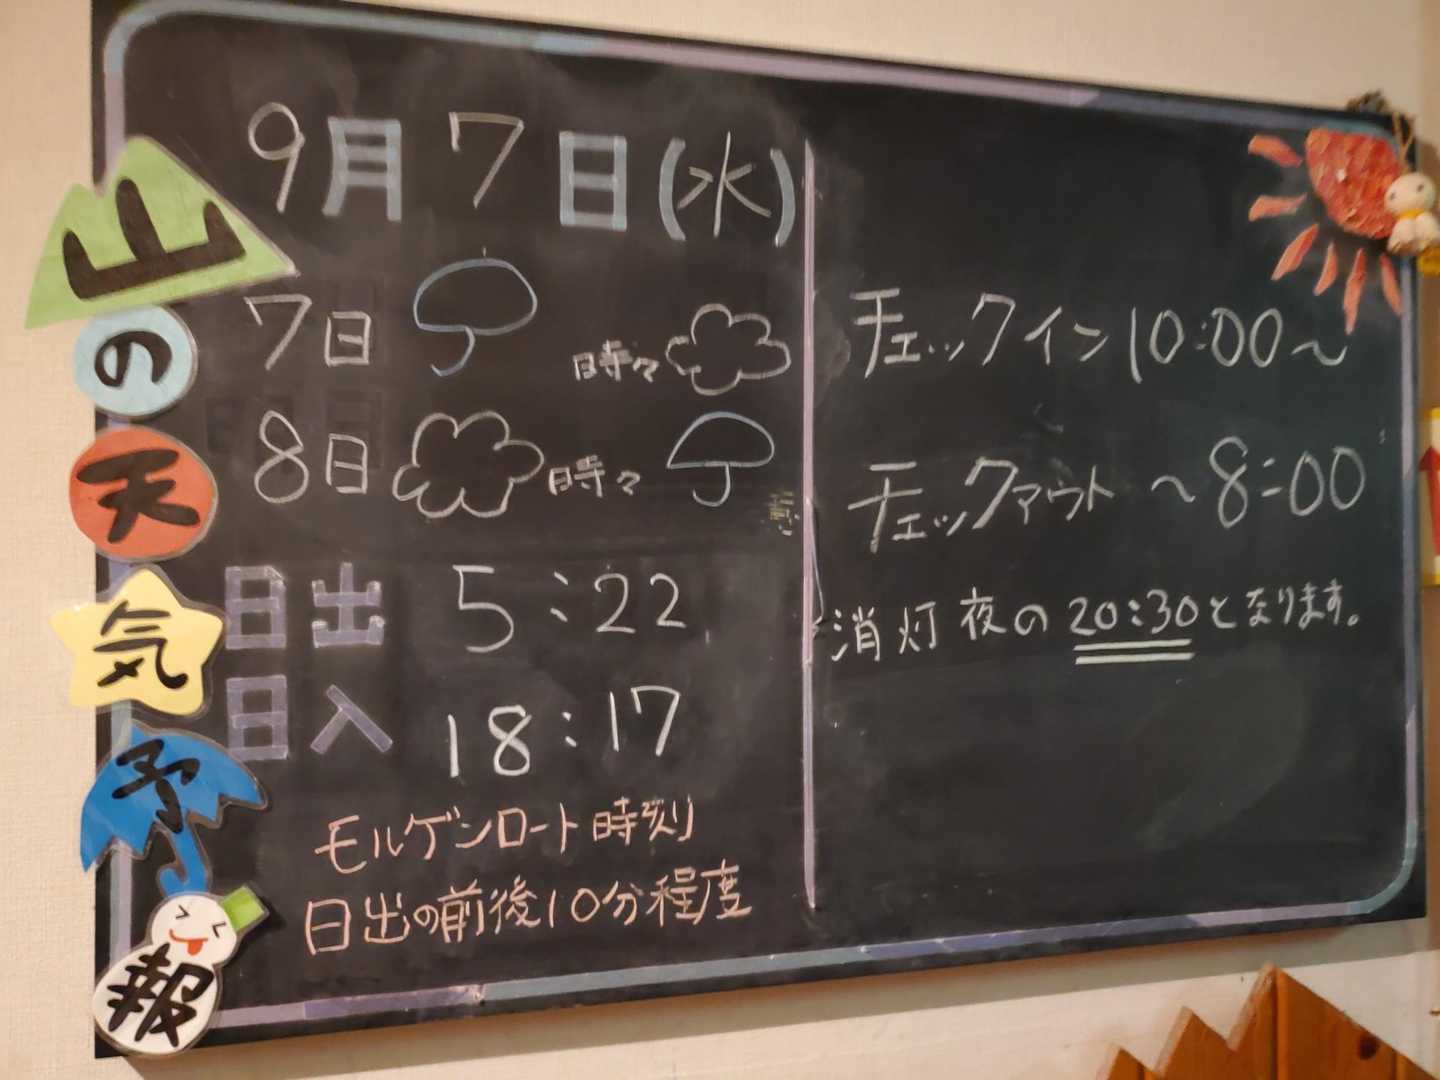 山の天気予報
9月7日(水)
7日 時々
8日 時々
日出 5:22
日入 18:17
モルゲンロート時刻
日出の前後10分程度
チェックイン10:00〜
チェックアウト 〜8:00
消灯 夜の 20:30となります。